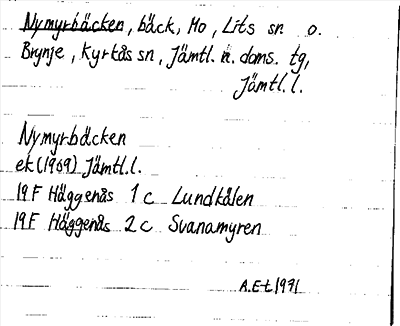 Nymyrbäcken, bäck, Mo, Lits sn o.
Brynje, Kyrkås sn, Jämtl. n. doms. tg,
Jämtl. l.
Nymyrbäcken
ek (1969) Jämtl. l.
19F Häggenås 1c Lundkälen
19F Häggenås 2c Svanamyren
A.E-t 1971